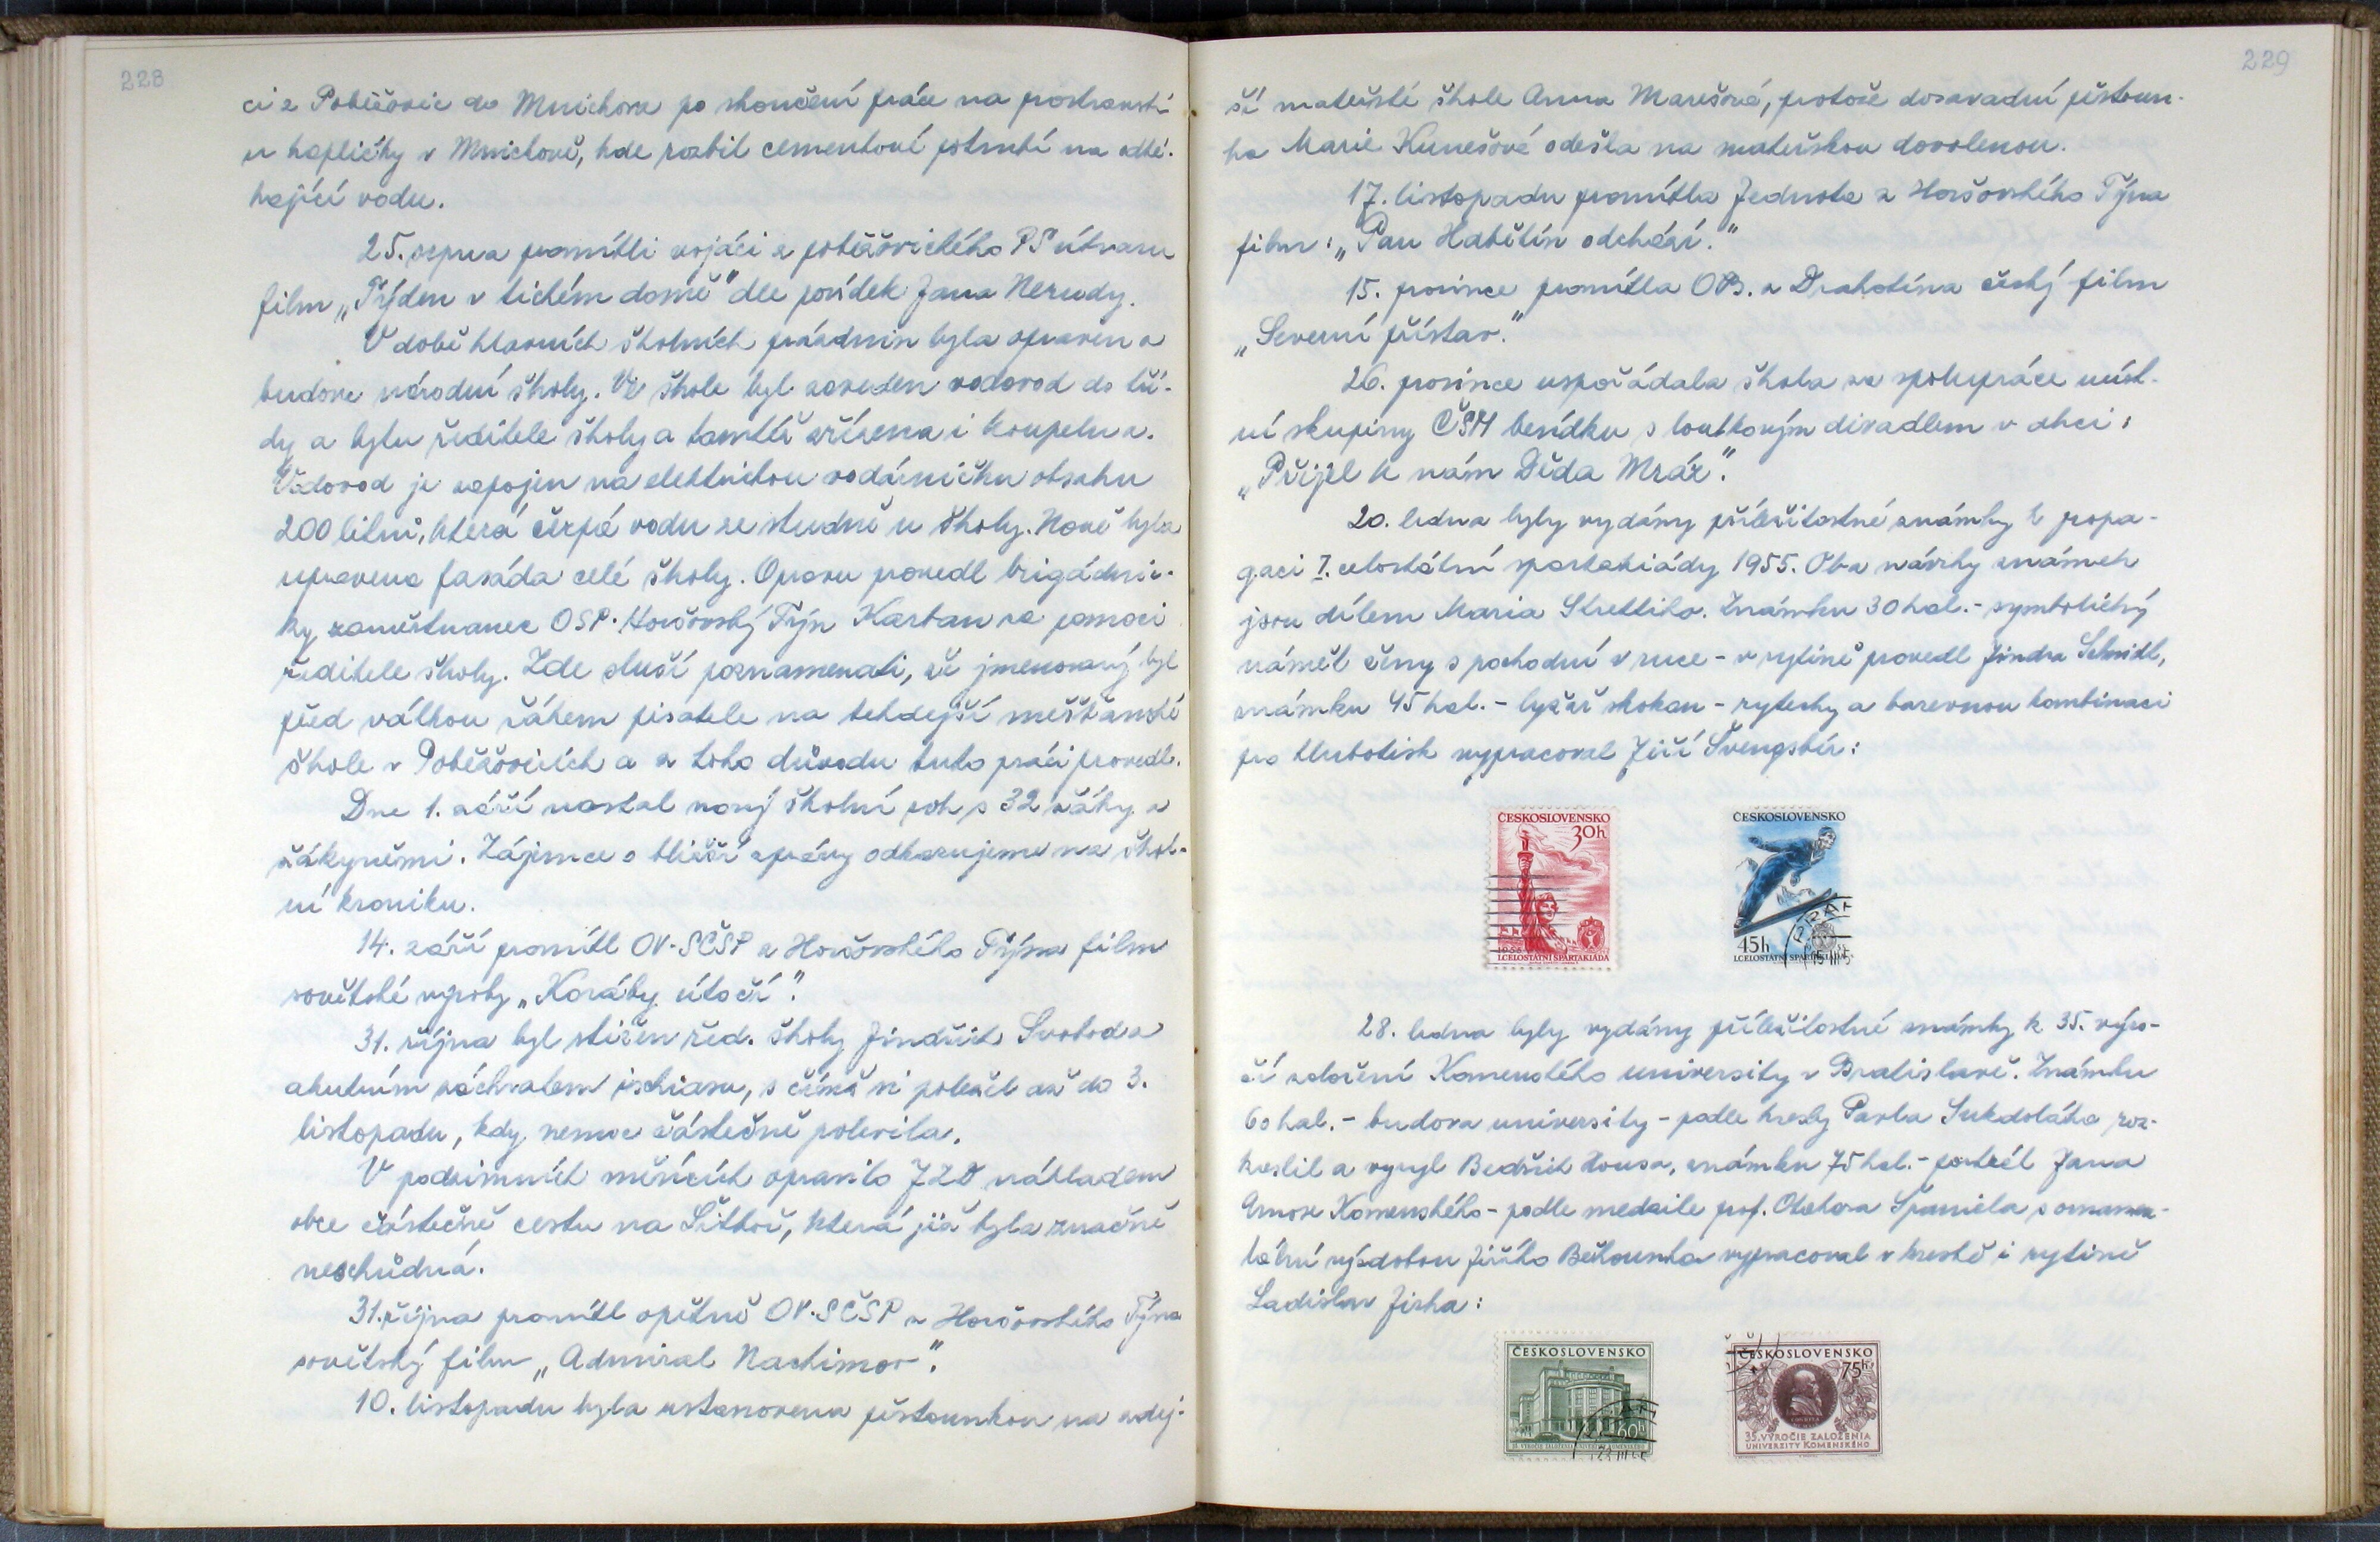 228
ci z Poběžovic do Mnichova po skončení práce na prostranství
u kapličky v Mnichově, kde rozbil cementové potrubí na odté-
kající vodu.
25. srpna promítli vojáci z poběžovického PS útvaru
film „Týden v tichém domě" dle povídek Jana Nerudy.
V době hlavních školních prázdnin byla opravena
budova národní školy. Ve škole byl zaveden vodovod do tří-
dy a bytu ředitele školy a tamtéž zřízena i koupelna.
Vodovod je zapojen na elektrickou vodárničku obsahu
200 litrů, která čerpá vodu ze studně u školy. Nově byla
upravena fasáda celé školy. Opravu provedl brigádnic-
ky zaměstnanec OSP. Horšovský Týn Kastan za pomoci
ředitele školy. Zde sluší poznamenati, že jmenovaný byl
před válkou žákem pisatele na tehdejší měšťanské
škole v Poběžovicích a z toho důvodu tuto práci provedl.
Dne 1. září nastal nový školní rok s 32 žáky a
žákyněmi. Zájemce o bližší zprávy odkazujeme na škol-
ní kroniku.
14. září promítl OV-SČSP z Horšovského Týna film
sovětské výroby „Koráby útočí".
31. října byl stižen řed. školy Jindřich Svoboda
akutním záchvatem ischiasu, s čímž si poležel až do 3.
listopadu, kdy nemoc částečně polevila.
V podzimních měsících opravilo JZD nákladem
obce částečně cestu na Šitboř, která již byla značně
neschůdná.
31. října promítl opětně OV-SČSP z Horšovského Týna
sovětský film „Admiral Nachimov".
10. listopadu byla ustanovena pěstounkou na zdej-
229
ší mateřské škole Anna Marešová, protože dosavadní pěstoun-
ka Marie Kunešová odešla na mateřskou dovolenou.
17. listopadu promítla Jednota z Horšovského Týna
film: „Pan Habětín odchází."
15. prosince promítla OB. z Drahotína český film
„Severní přístav."
26. prosince uspořádala škola za spolupráce míst-
ní skupiny ČSM besídku s loutkovým divadlem v obci:
„Přijel k nám Děda Mráz".
20. ledna byly vydány příležitostné známky k propa-
gaci I. celostátní spartakiády 1955. Oba návrhy známek
jsou dílem Maria Strettiho. Známku 30 hal. - symbolický
námět ženy s pochodní v ruce - v rytině provedl Jindra Schmidt,
známku 45 hal. - lyžař skokan - rytecky a barevnou kombinaci
pro hlubotisk vypracoval Jiří Švengsbír:
ČESKOSLOVENSKO
30h
I.CELOSTÁTNÍ SPARTAKIÁDA
ČESKOSLOVENSKO
45h
I.CELOSTÁTNÍ SPARTAKIÁDA
28. ledna byly vydány příležitostné známky k 35. výro-
čí založení Komenského university v Bratislavě. Známku
60 hal. - budova university - podle kresby Pavla Sukdoláka roz-
kreslil a vyryl Bedřich Housa, známku 75 hal. - portrét Jana
Amose Komenského - podle medaile prof. Otakara Španiela s ornamen-
tální výzdobou Jiřího Běhounka vypracoval v kresbě i rytině
Ladislav Jirka:
ČESKOSLOVENSKO
60h
35. VÝROČIE ZALOŽENIA UNIVERZITY KOMENSKÉHO
ČESKOSLOVENSKO
75h
35. VÝROČIE ZALOŽENIA
UNIVERZITY KOMENSKÉHO